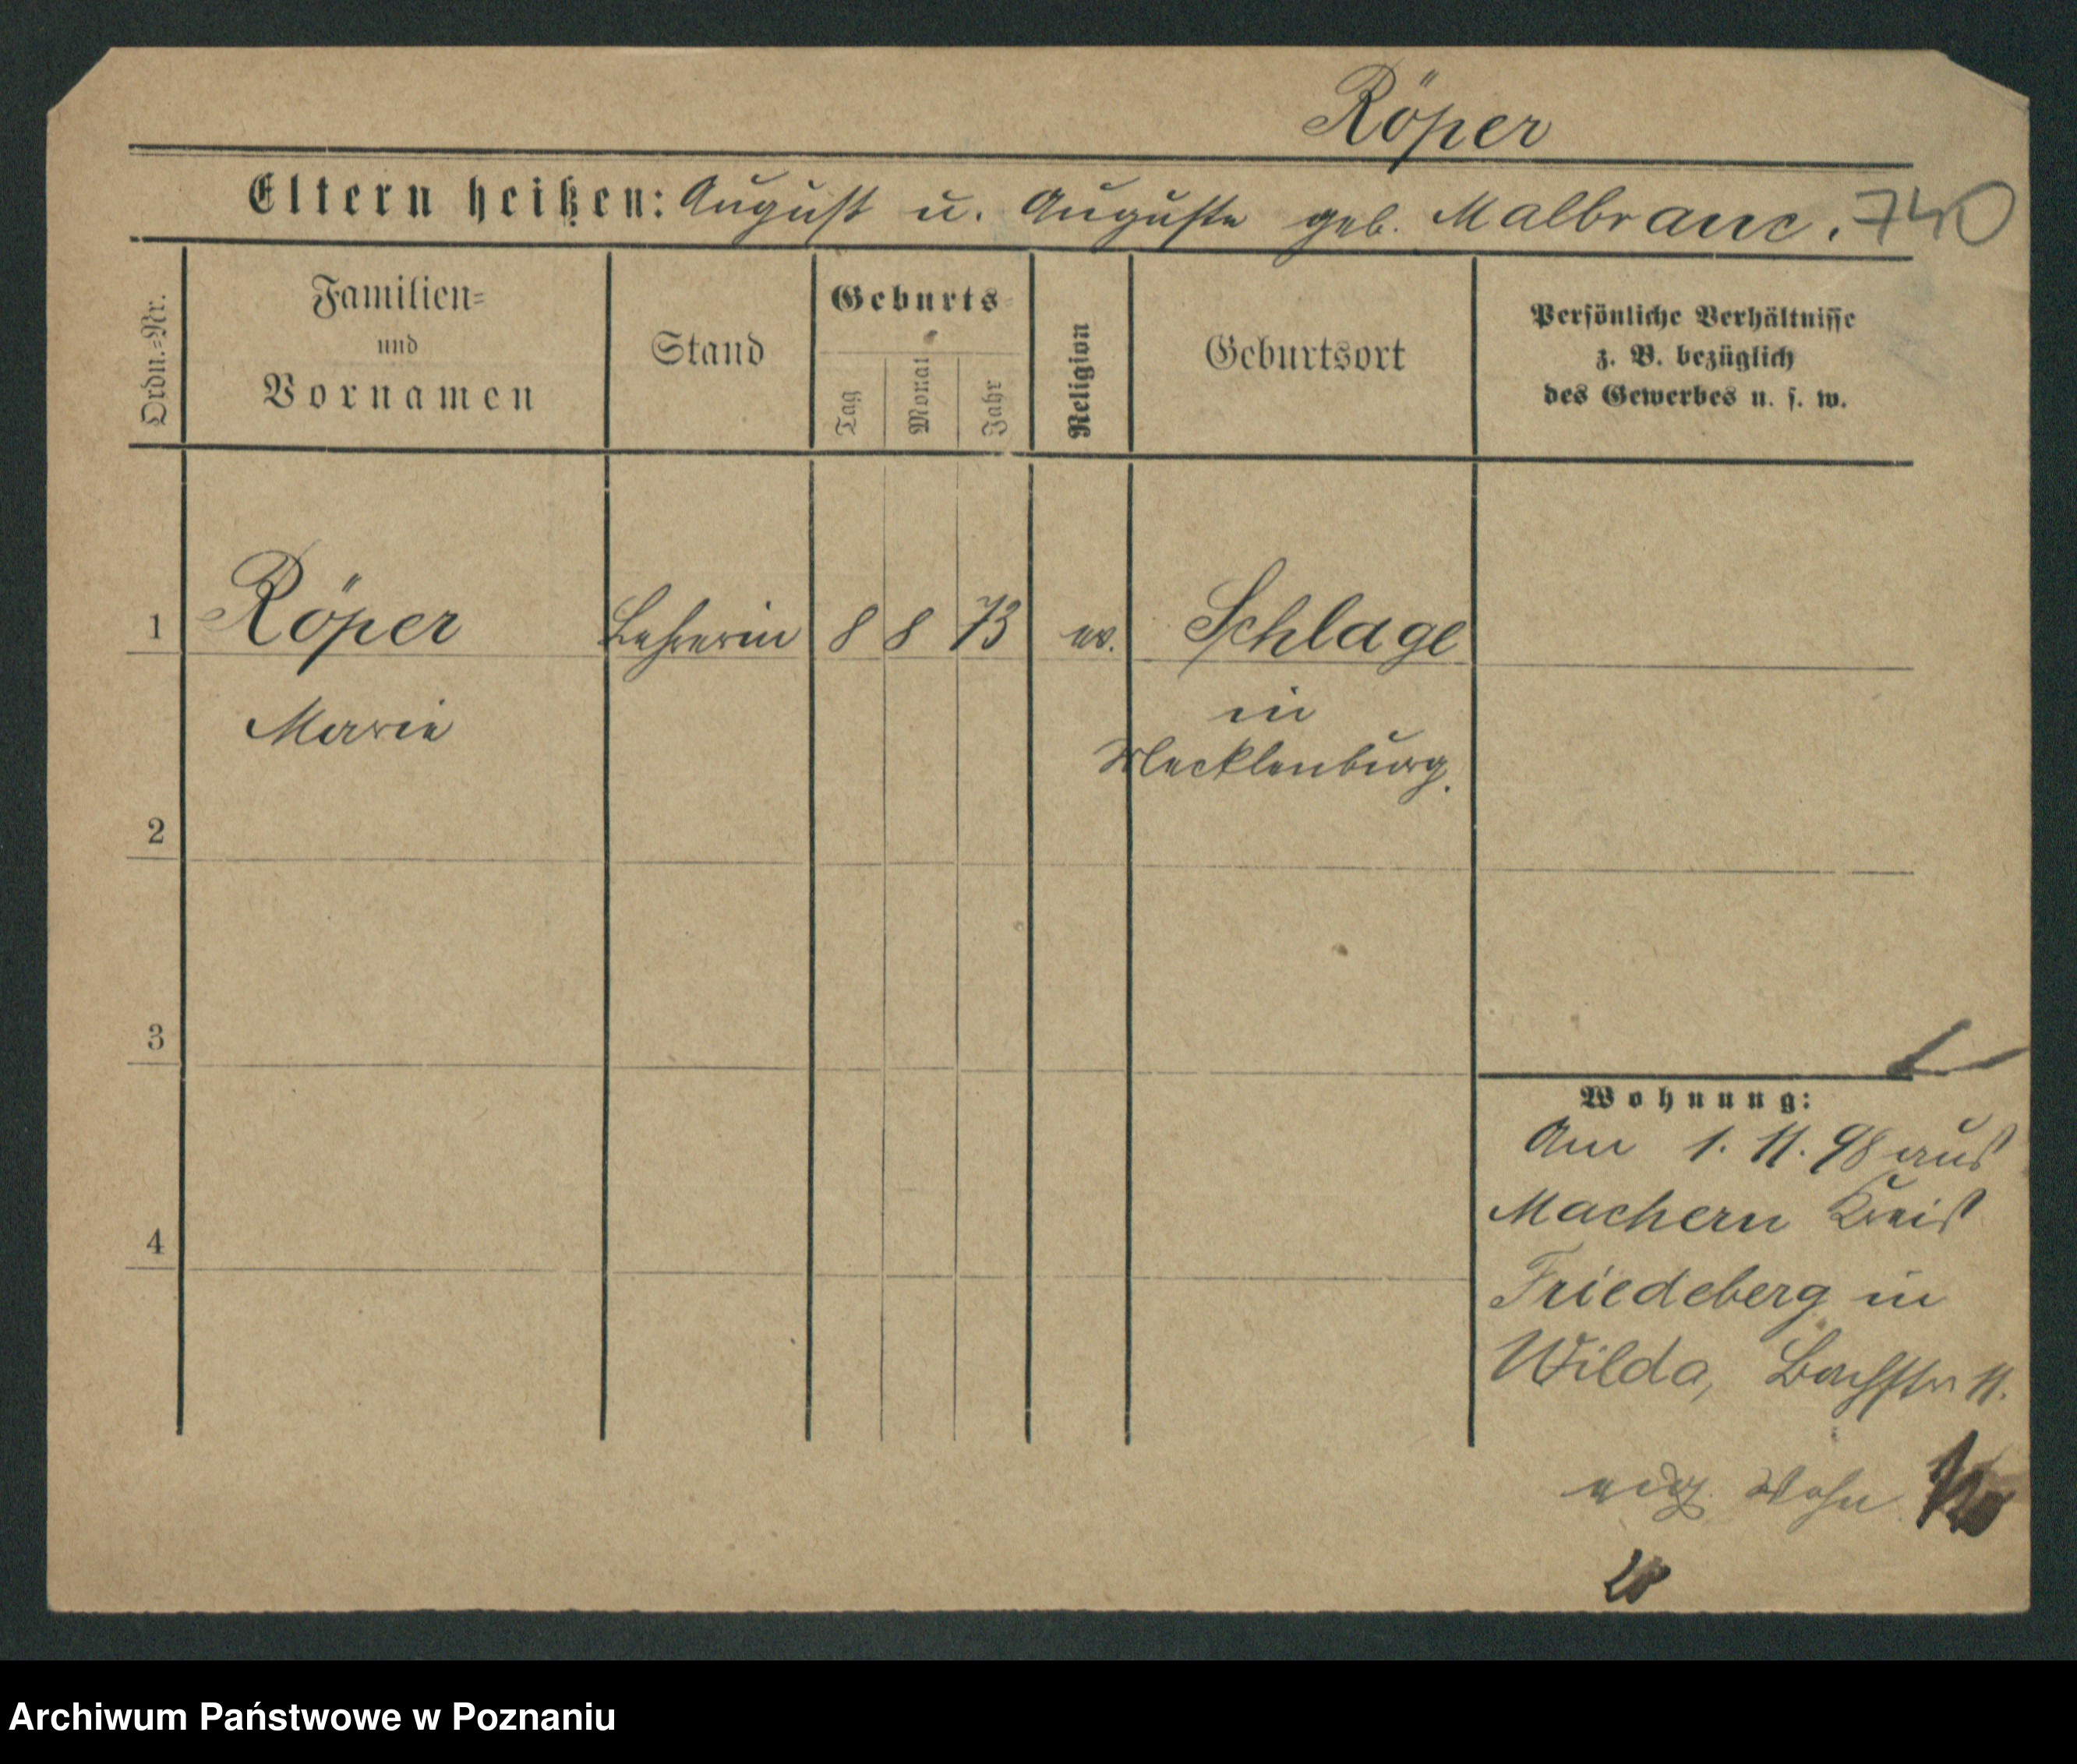 Röper
Eltern heißen: August u. Auguste geb. Malbranc. 740
Ordn.=Nr.
Familien=
und
Vornamen
Stand
Geburts=
Tag
Monat
Jahr
Religion
Geburtsort
Persönliche Verhältnisse
z. B. bezüglich
des Gewerbes u. s. w.
1 Röper Lehrerin 8 8 73 ev. Schlage
Marie
in
Mecklenburg.
2
3
4
Wohnung:
Am 1. 11. 98 aus
Machern Kreis
Friedeberg in
Wilda, Bachstr 11.
eig. Wohn
Archiwum Państwowe w Poznaniu